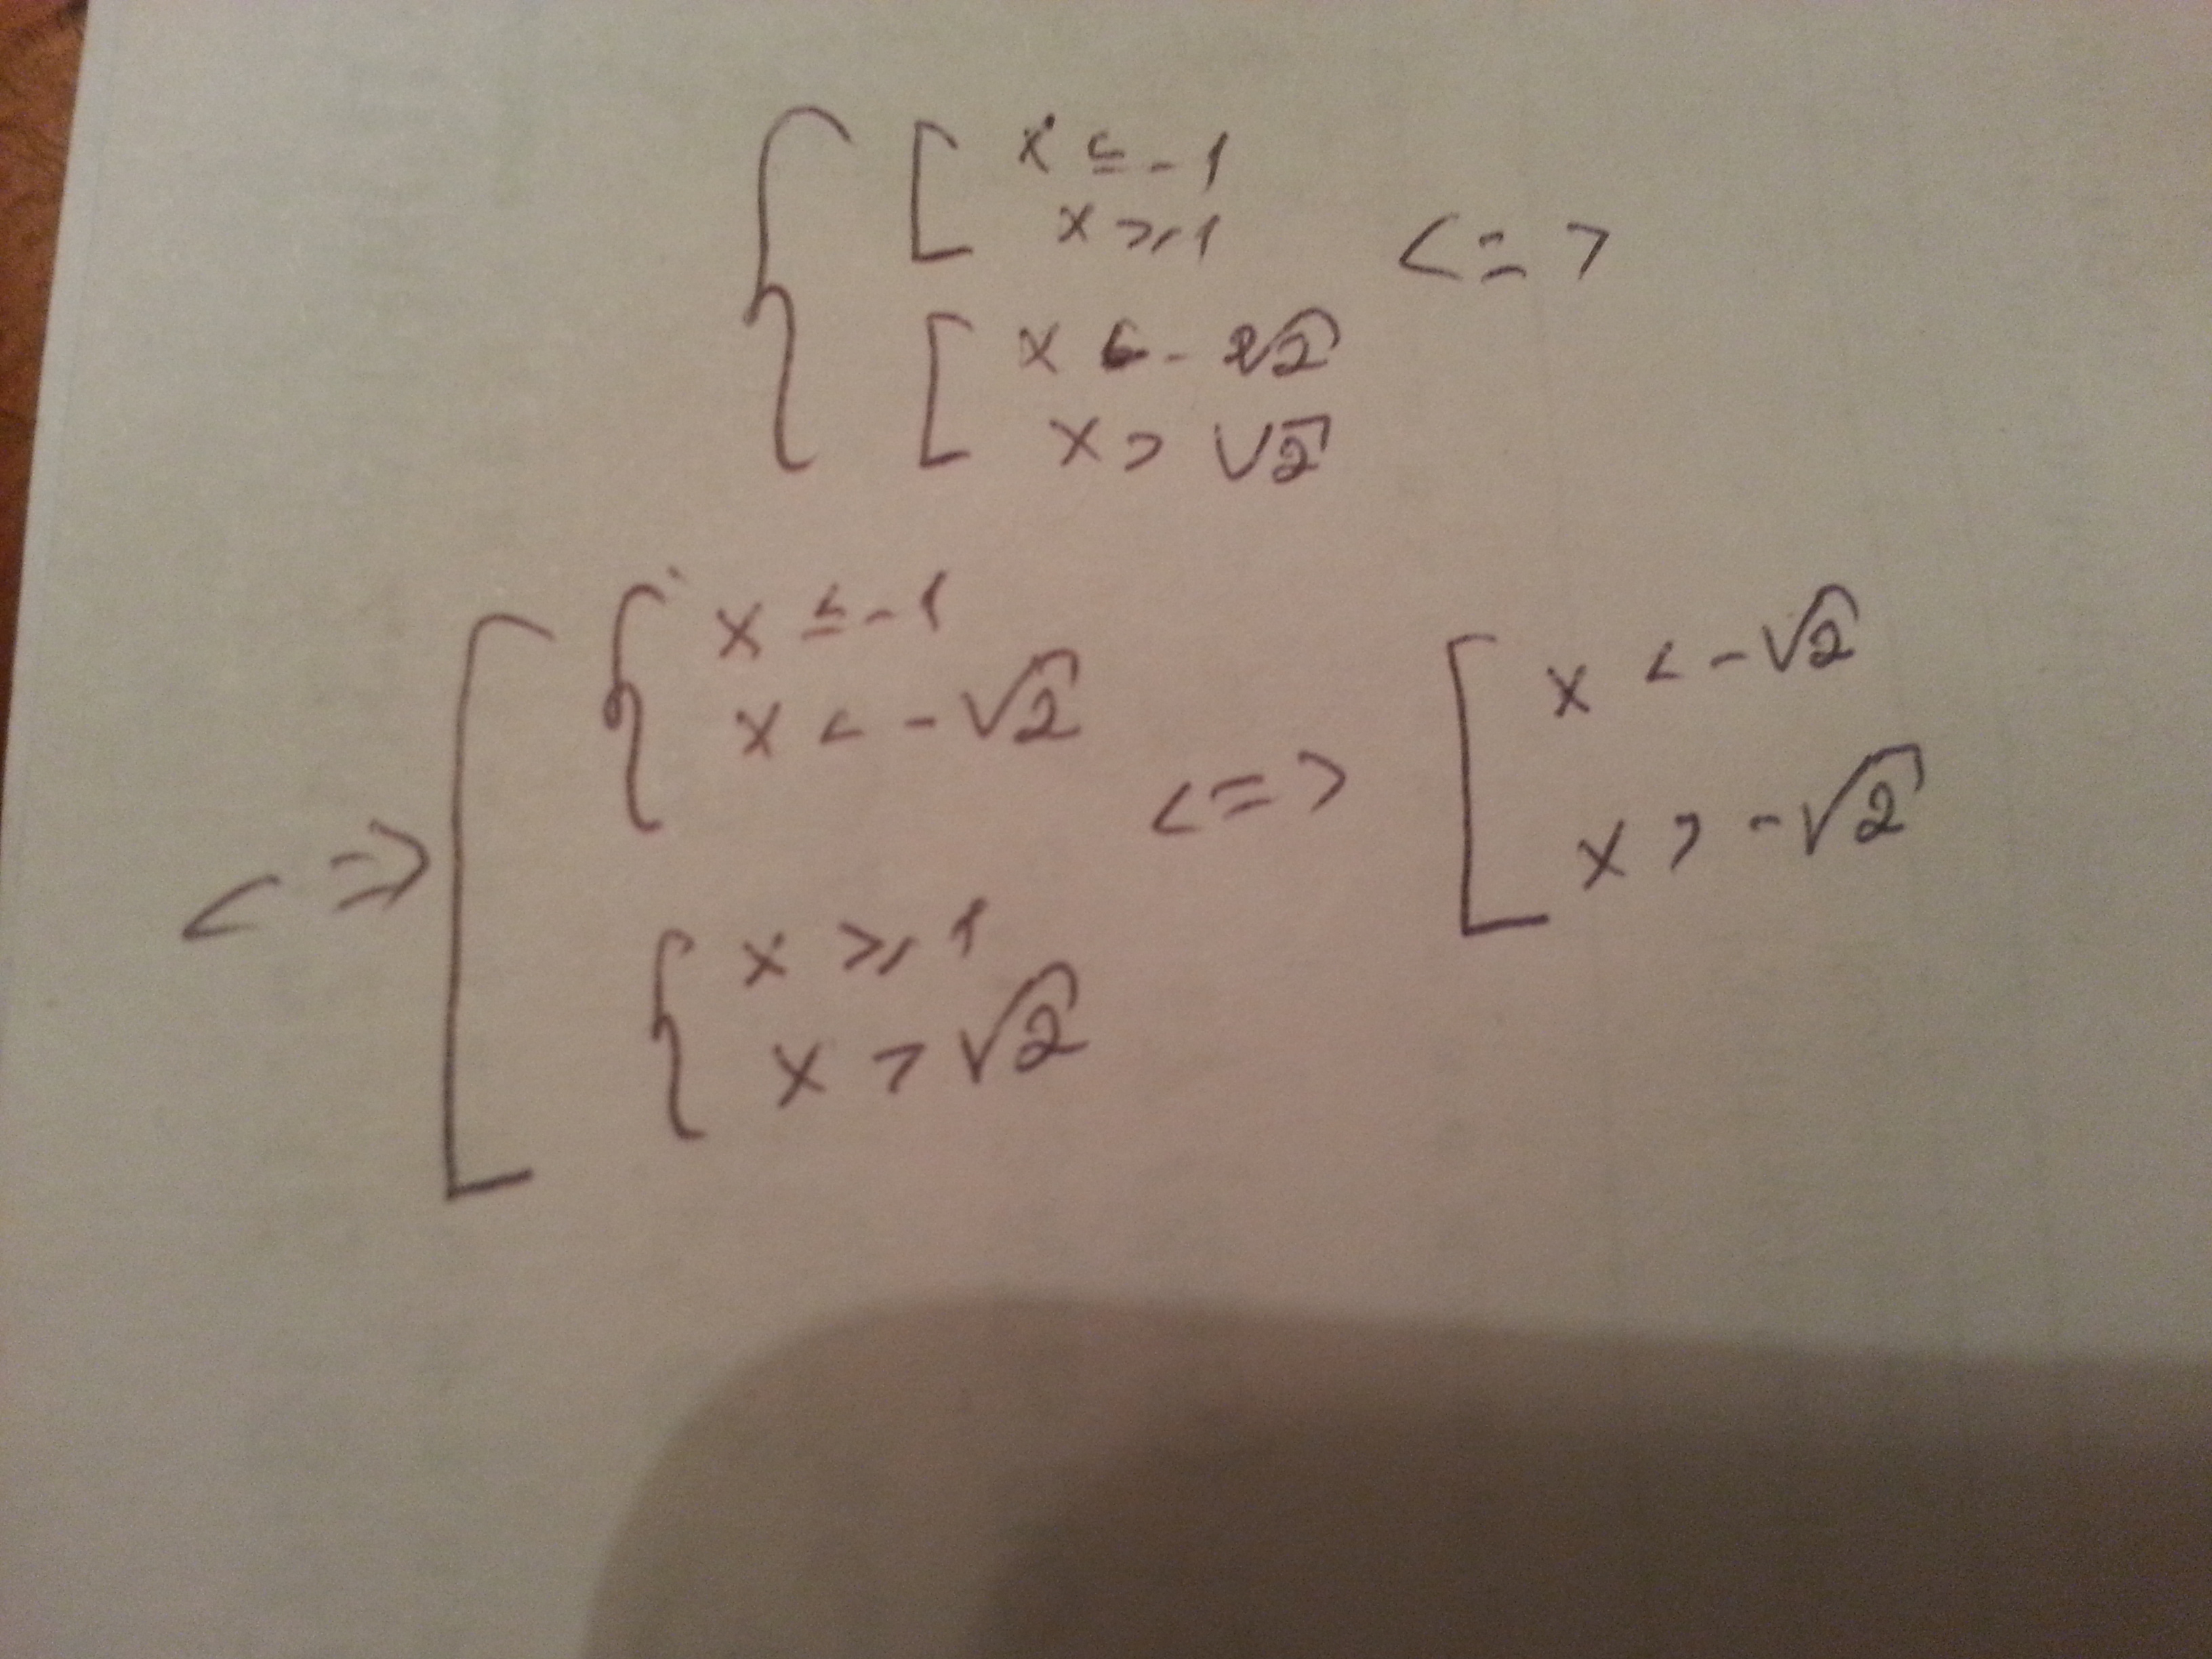 { [ x ≤ -1
x ≥ 1 <=>
[ x < - √2
x > √2
<=> [ { x ≤ -1
x < -√2
{ x ≥ 1
x > √2
<=> [ x < -√2
x > -√2